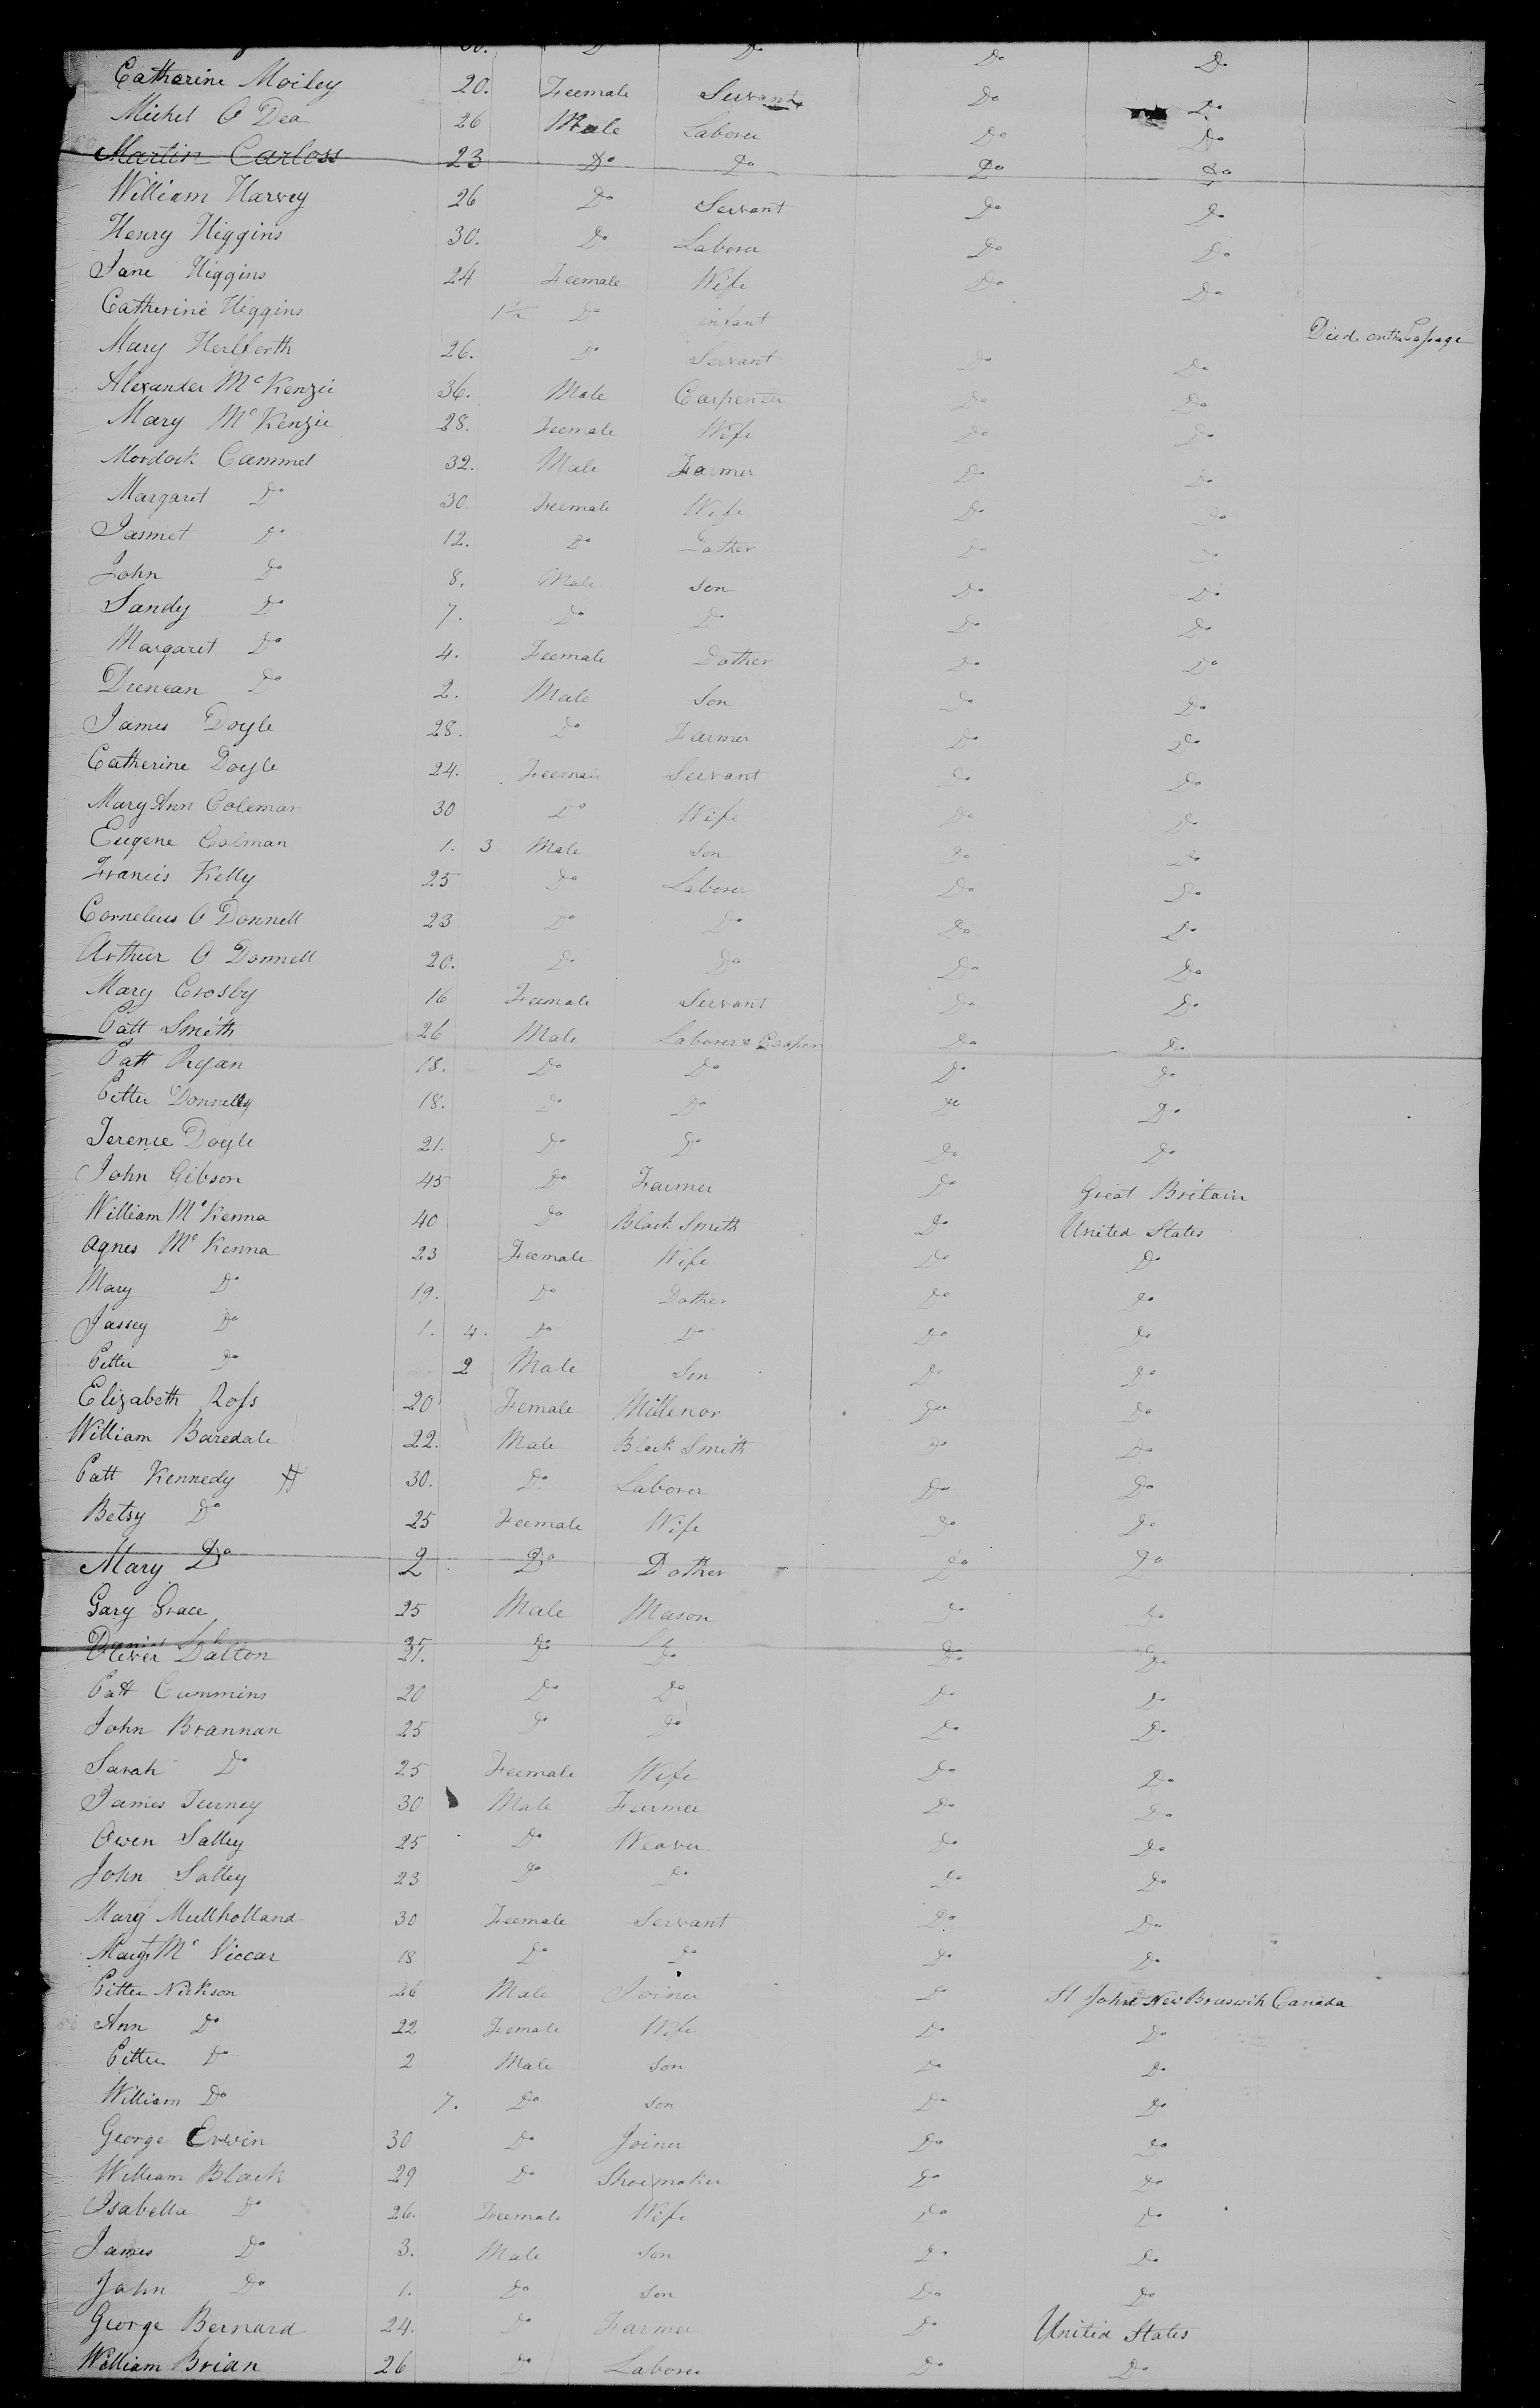 30. Do Do Do Do
Catharine Moiley 20. Feemale Servant Do Do
Michel O Dea 26 Male Laborer Do Do
Martin Carloss 23 Do Do Do Do
William Harvey 26 Do Servant Do Do
Henry Higgins 30. Do Laborer Do Do
Jane Higgins 24 Feemale Wife Do Do
Catherine Higgins 1½ Do infant Died on the Passage
Mary Herlferth 26. Do Servant Do Do
Alexander McKenzie 36. Male Carpenter Do Do
Mary McKenzie 28. Feemale Wife Do Do
Mordock Cammel 32. Male Farmer Do Do
Margaret Do 30. Feemale Wife Do Do
Jasmet Do 12. Do Dather Do Do
John Do 8. Male Son Do Do
Sandy Do 7. Do Do Do Do
Margaret Do 4. Feemale Dather Do Do
Duncan Do 2. Male Son Do Do
James Doyle 28. Do Farmer Do Do
Catherine Doyle 24. Feemale Servant Do Do
Mary Ann Coleman 30 Do Wife Do Do
Eugene Colman 1. 3 Male Son Do Do
Francis Kelly 25 Do Laborer Do Do
Cornelius O Donnell 23 Do Do Do Do
Arthur O Donnell 20. Do Do Do Do
Mary Crosby 16 Feemale Servant Do Do
Patt Smith 26 Male Laborer & Cooper Do Do
Patt Ryan 18. Do Do Do Do
Petter Donnelly 18. Do Do Do Do
Terence Doyle 21. Do Do Do Do
John Gibson 45 Do Farmer Do Great Britain
William McKenna 40 Do Black Smith Do United States
Agnes McKenna 23 Feemale Wife Do Do
Mary Do 19. Do Dather Do Do
Jassey Do 1. 4. Do Do Do Do
Petter Do 2 Male Son Do Do
Elizabeth Ross 20 Female Millenor Do Do
William Baredale 22. Male Black Smith Do Do
Patt Kennedy 30. Do Laborer Do Do
Betsy Do 25 Feemale Wife Do Do
Mary Do 2 Do Dother Do Do
Gary Grace 25 Male Mason Do Do
Oliver Dalton 21. Do Do Do Do
Patt Cummins 20 Do Do Do Do
John Brannan 25 Do Do Do Do
Sarah Do 25 Feemale Wife Do Do
James Turney 30 Male Farmer Do Do
Owen Salley 25 Do Weaver Do Do
John Salley 23 Do Do Do Do
Marg Mullholland 30 Feemale Servant Do Do
Margt Mc Viccar 18 Do Do Do Do
Pitter Nickson 26 Male Joiner Do St Johns New Bruswih Canada
Ann Do 22 Female Wife Do Do
Pitter Do 2 Male Son Do Do
William Do 7. Do son Do Do
George Erwin 30 Do Joiner Do Do
William Black 29 Do Shoemaker Do Do
Isabella Do 26. Feemale Wife Do Do
James Do 3. Male Son Do Do
John Do 1. Do Son Do Do
George Bernard 24. Do Farmer Do United States
William Brian 26 Do Laborer Do Do